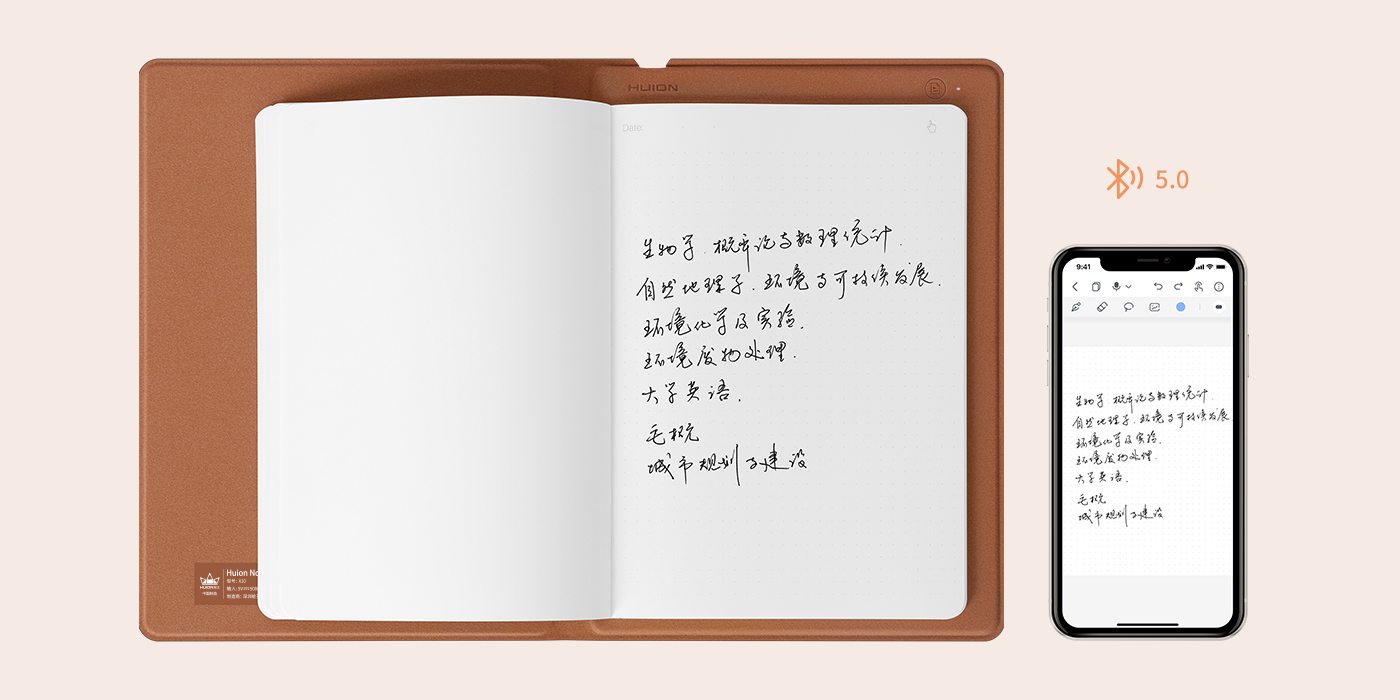 HUION
Date:
生物学.概率论与数理统计.
自然地理学.环境与可持续发展.
环境化学及实验.
环境废物处理.
大学英语.
毛概
城市规划与建设
Huion No
型号: X10
HUION
中国制造
5.0
9:41
生物学.概率论与数理统计.
自然地理学.环境与可持续发展
环境化学及实验.
环境废物处理.
大学英语.
毛概
城市规划与建设